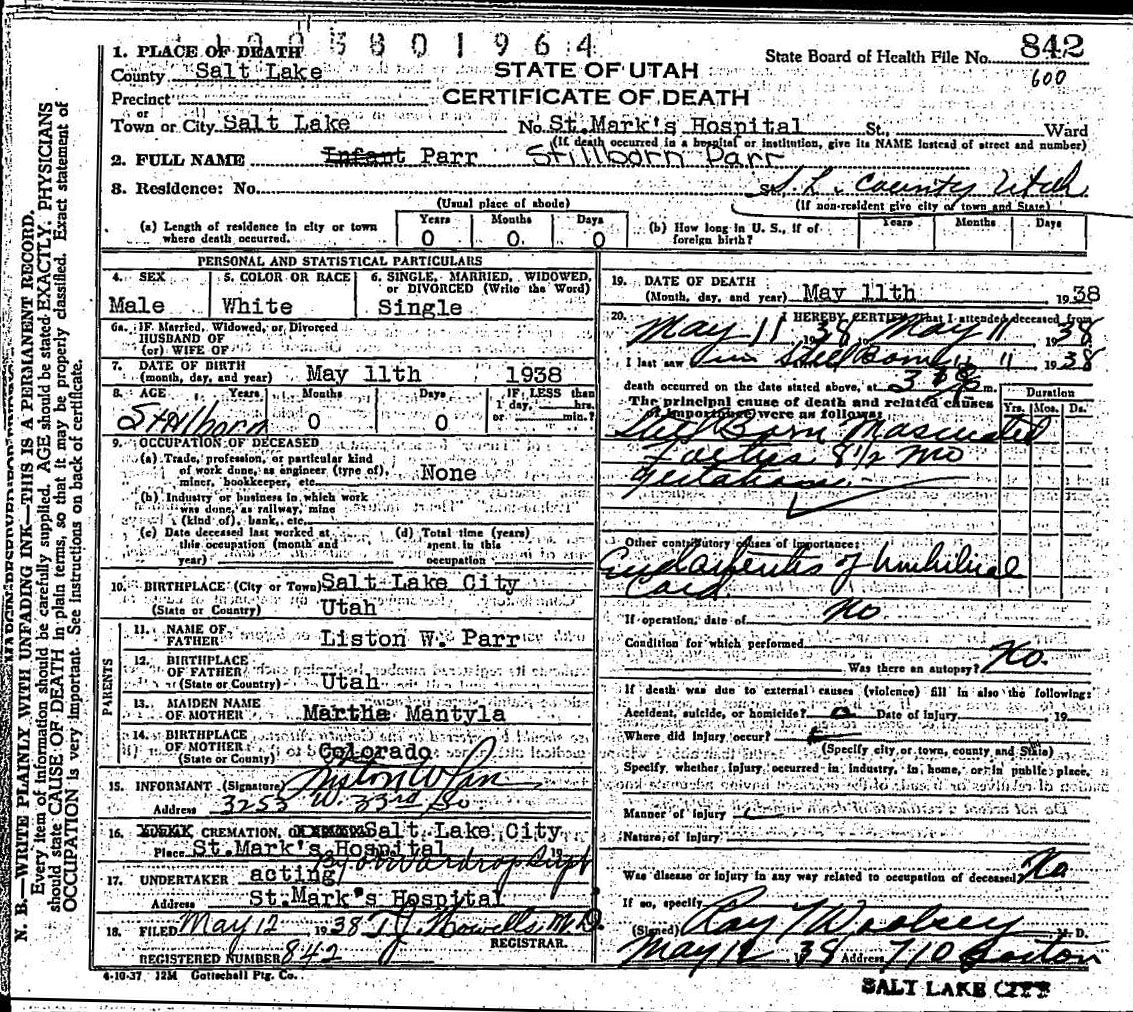 1 1 0 0 3 8 0 1 9 6 4
1. PLACE OF DEATH
State Board of Health File No. 842
County Salt Lake
STATE OF UTAH
600
Precinct
CERTIFICATE OF DEATH
or
Town or City Salt Lake No. St.Mark's Hospital St., Ward
(If death occurred in a hospital or institution, give its NAME instead of street and number)
2. FULL NAME Infant Parr Stillborn Parr
3. Residence: No. St. S. L. County Utah
(Usual place of abode) (If non-resident give city or town and State)
(a) Length of residence in city or town where death occurred. Years 0 Months 0 Days 0
(b) How long in U. S., if of foreign birth? Years Months Days
PERSONAL AND STATISTICAL PARTICULARS
4. SEX Male
5. COLOR OR RACE White
6. SINGLE, MARRIED, WIDOWED, or DIVORCED (Write the Word) Single
6a. IF Married, Widowed, or Divorced
HUSBAND OF
(or) WIFE OF
7. DATE OF BIRTH
(month, day, and year) May 11th 1938
8. AGE Years Months Days IF LESS than
1 day, hrs.
or min.?
Stillborn 0 0
9. OCCUPATION OF DECEASED
(a) Trade, profession, or particular kind
of work done, as engineer (type of), None
miner, bookkeeper, etc.
(b) Industry or business in which work
was done, as railway, mine
(kind of), bank, etc.
(c) Date deceased last worked at
this occupation (month and
year)
(d) Total time (years)
spent in this
occupation
10. BIRTHPLACE (City or Town) Salt Lake City
(State or Country) Utah
PARENTS
11. NAME OF
FATHER Liston W. Parr
12. BIRTHPLACE
OF FATHER
(State or Country) Utah
13. MAIDEN NAME
OF MOTHER Martha Mantyla
14. BIRTHPLACE
OF MOTHER
(State or Country) Colorado
15. INFORMANT (Signature) Liston W Parr
Address 3253 W. 33rd So
16. CREMATION, Salt Lake City
Place St.Mark's Hospital 19
17. UNDERTAKER acting By Wardrop Supt
Address St.Mark's Hospital
18. FILED May 12 1938 T.J. Howells, M.D.
REGISTRAR.
REGISTERED NUMBER 842
6-10-37 12M Gottschall Ptg. Co.
19. DATE OF DEATH
(Month, day, and year) May 11th 1938
20. I HEREBY CERTIFY that I attended deceased from
May 11 1938 to May 11 1938
I last saw him Still Born 11 1938
death occurred on the date stated above, at 3 p m.
The principal cause of death and related causes
of importance were as follows:
Duration
Yrs. Mos. Ds.
Still Born Mascerated
Foetus 8 1/2 mo
Gestation
Other contributory causes of importance:
Endarteritis of Umbilical
Cord
If operation, date of No
Condition for which performed
Was there an autopsy? No.
If death was due to external causes (violence) fill in also the following:
Accident, suicide, or homicide? Date of injury 19
Where did injury occur?
(Specify city or town, county and State)
Specify whether injury occurred in industry, in home, or in public place.
Manner of injury
Nature of injury
Was disease or injury in any way related to occupation of deceased? No
If so, specify
(Signed) Ray T Woolsey, M. D.
May 12 1938 Address 710 Boston
SALT LAKE CITY
N. B.—WRITE PLAINLY WITH UNFADING INK—THIS IS A PERMANENT RECORD.
Every item of information should be carefully supplied. AGE should be stated EXACTLY. PHYSICIANS
should state CAUSE OF DEATH in plain terms, so that it may be properly classified. Exact statement of
OCCUPATION is very important. See instructions on back of certificate.